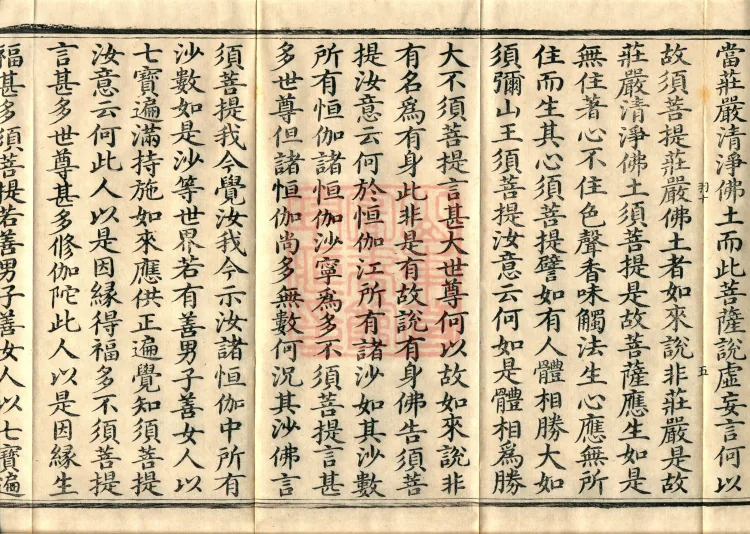 當莊嚴清淨佛土而此菩薩說虛妄言何以
故須菩提莊嚴佛土者如來說非莊嚴是故
莊嚴清淨佛土須菩提是故菩薩應生如是
無住著心不住色聲香味觸法生心應無所
住而生其心須菩提譬如有人體相勝大如
須彌山王須菩提汝意云何如是體相為勝
大不須菩提言甚大世尊何以故如來說非
有名為有身此非是有故說有身佛告須菩
提汝意云何於恒伽江所有諸沙如其沙數
所有恒伽諸恒伽沙寧為多不須菩提言甚
多世尊但諸恒伽尚多無數何況其沙佛言
須菩提我今覺汝我今示汝諸恒伽中所有
沙數如是沙等世界若有善男子善女人以
七寶遍滿持施如來應供正遍覺知須菩提
汝意云何此人以是因緣得福多不須菩提
言甚多世尊甚多修伽陀此人以是因緣生
福甚多須菩提若善男子善女人以七寶遍
羽十
五